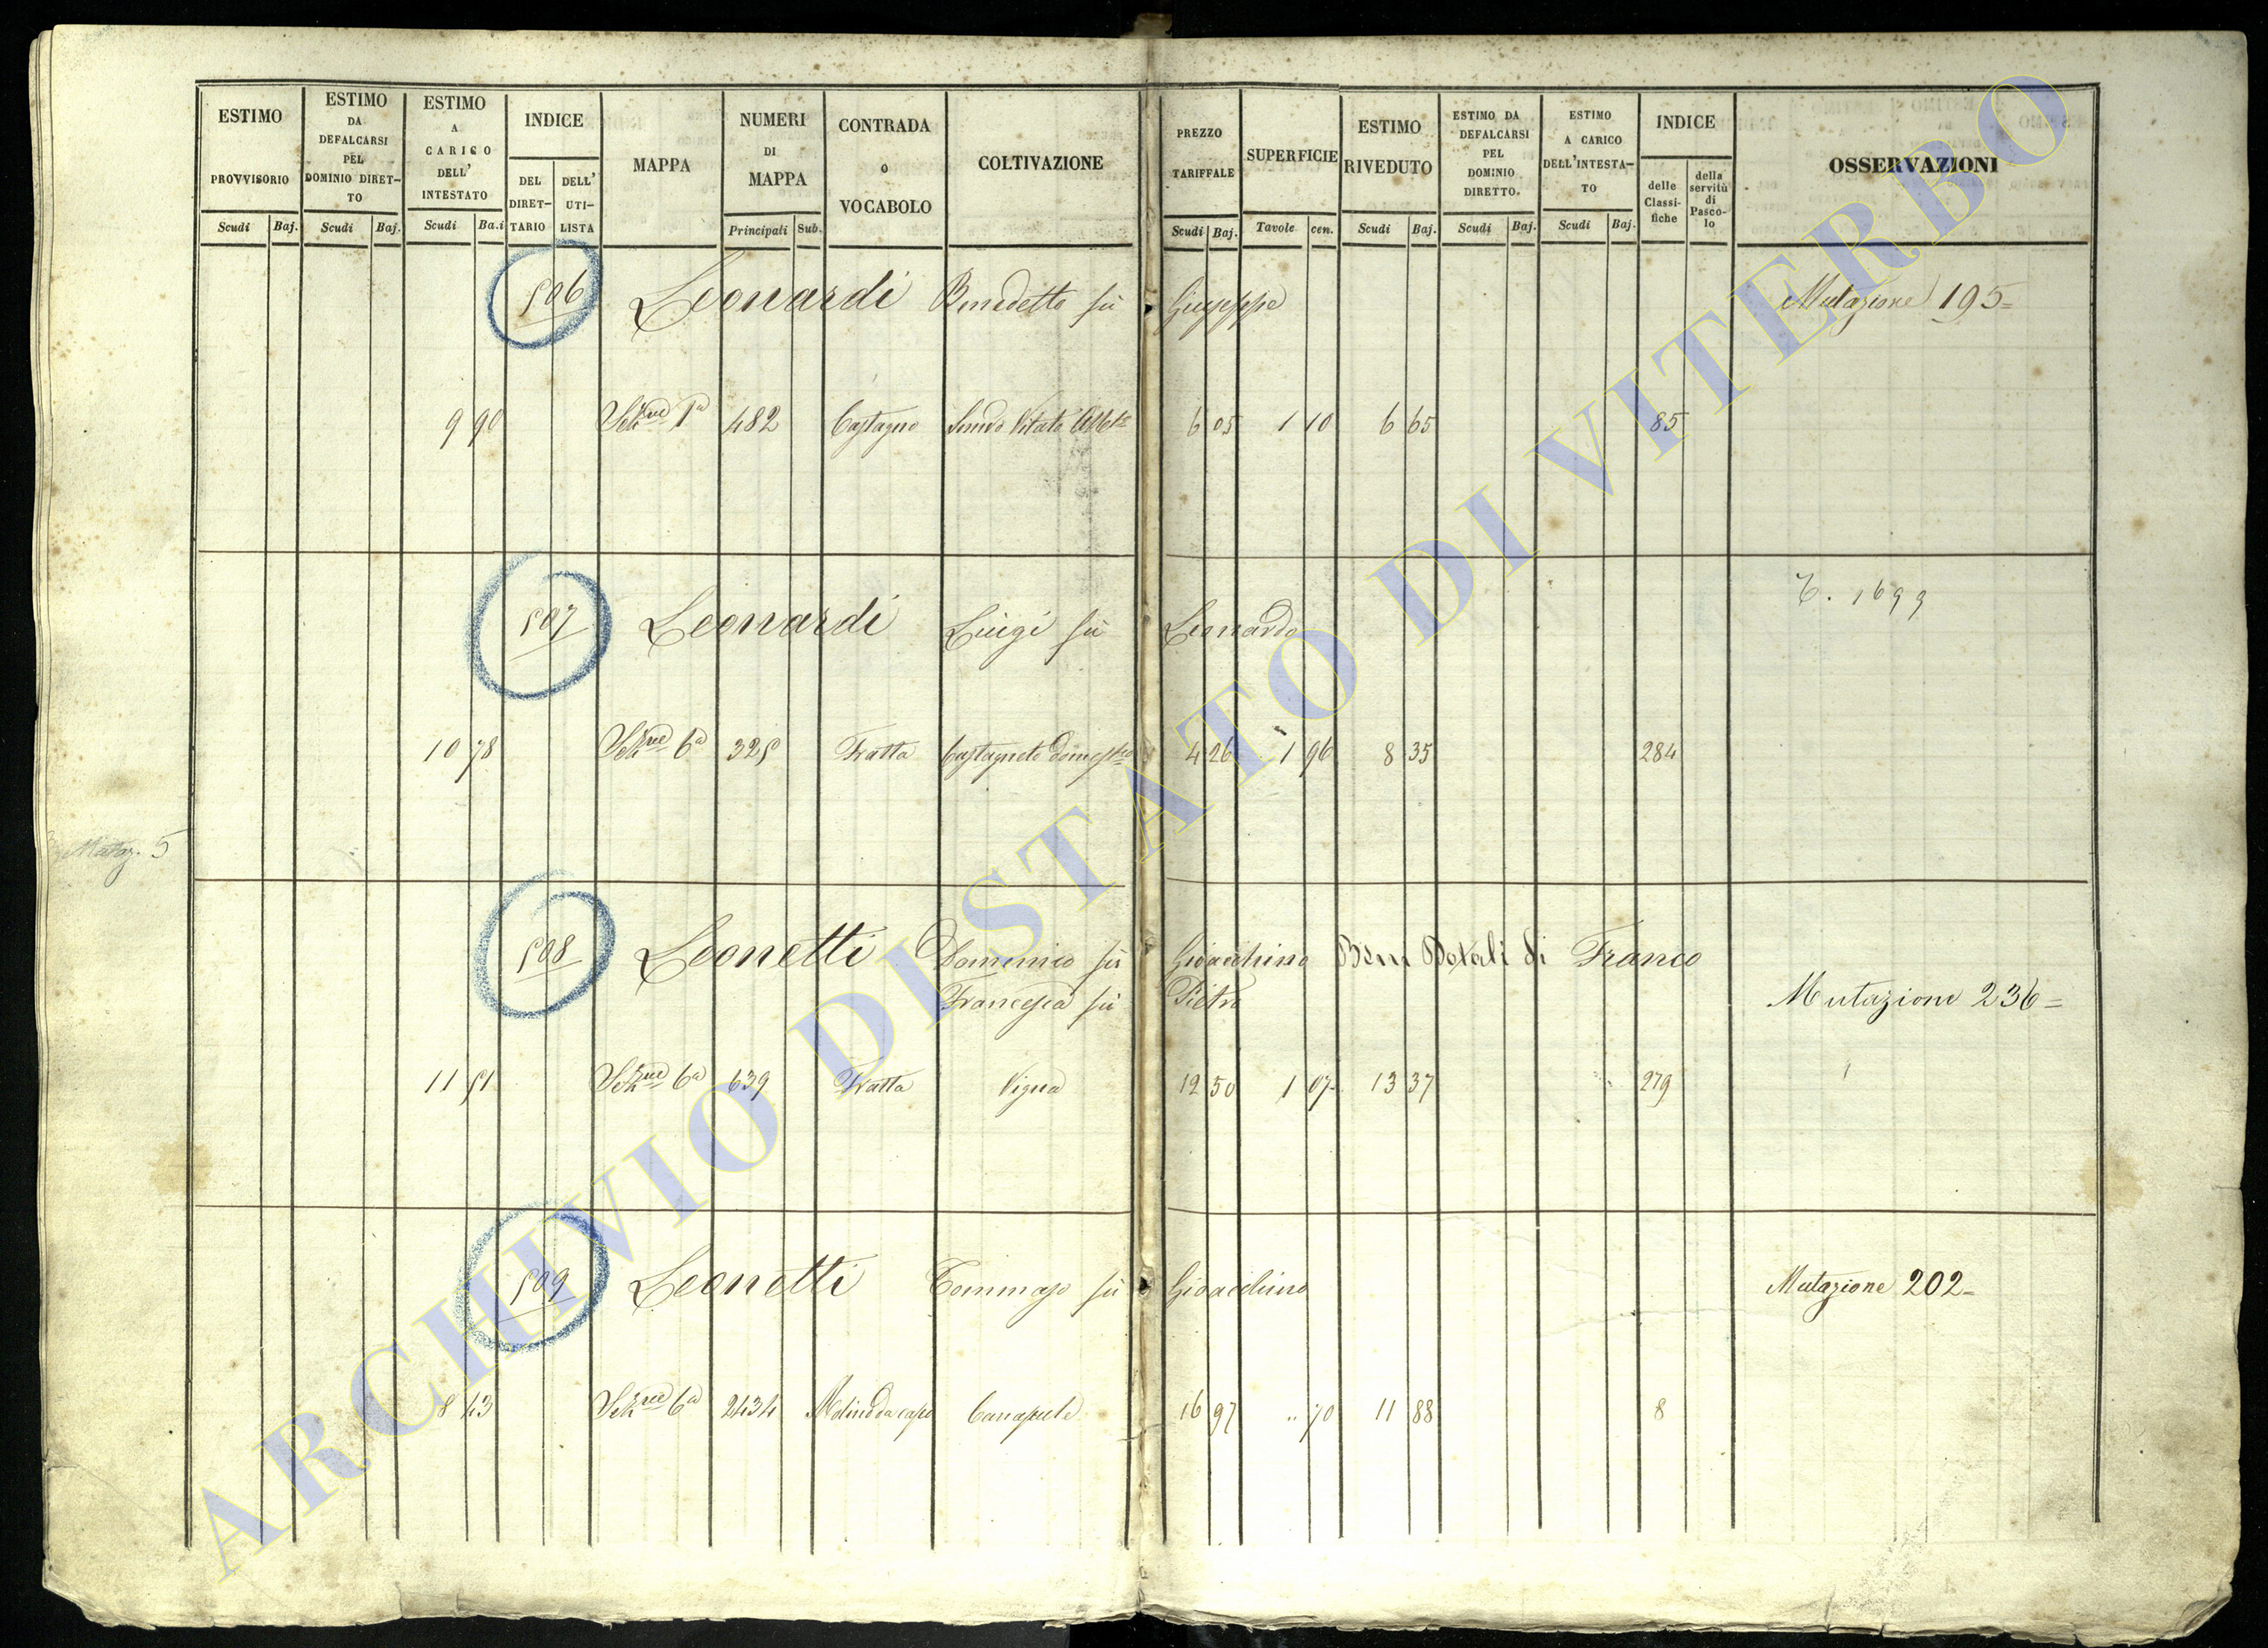 ESTIMO PROVVISORIO
ESTIMO DA DEFALCARSI PEL DOMINIO DIRET-TO
ESTIMO A CARICO DELL' INTESTATO
INDICE
DEL DIRET-TARIO
DELL' UTI-LISTA
MAPPA
NUMERI DI MAPPA
CONTRADA o VOCABOLO
COLTIVAZIONE
PREZZO TARIFFALE
SUPERFICIE
ESTIMO RIVEDUTO
ESTIMO DA DEFALCARSI PEL DOMINIO DIRETTO.
ESTIMO A CARICO DELL'INTESTA-TO
INDICE
delle Classi-fiche
della servitù di Pasco-lo
OSSERVAZIONI
Scudi Baj. Scudi Baj. Scudi Ba.i Principali Sub. Scudi Baj. Tavole cen. Scudi Baj. Scudi Baj. Scudi Baj.
506 Leonardi Benedetto fù Giuseppe Mutazione 195=
9 90 Sezne 1a 482 Castagno Vitato 6 05 1 10 6 65 85
T. 1699
507 Leonardi Luigi fù Leonardo
10 78 Sezne 6a 325 Fratta Castagneto domestco 4 26 1 96 8 35 284
Mutaz. 5
508 Leonetti Domenico fù Gioacchino Beni Dotali di Franco
Francesca fù Pietro Mutazione 236=
11 51 Sezne 6a 639 Fratta Vigna 12 50 1 07 13 37 279
509 Leonetti Tommaso fù Gioacchino Mutazione 202=
8 43 Sezne 6a 2434 Molino da capo Canapule 16 97 .. 70 11 88 8
ARCHIVIO DI STATO DI VITERBO